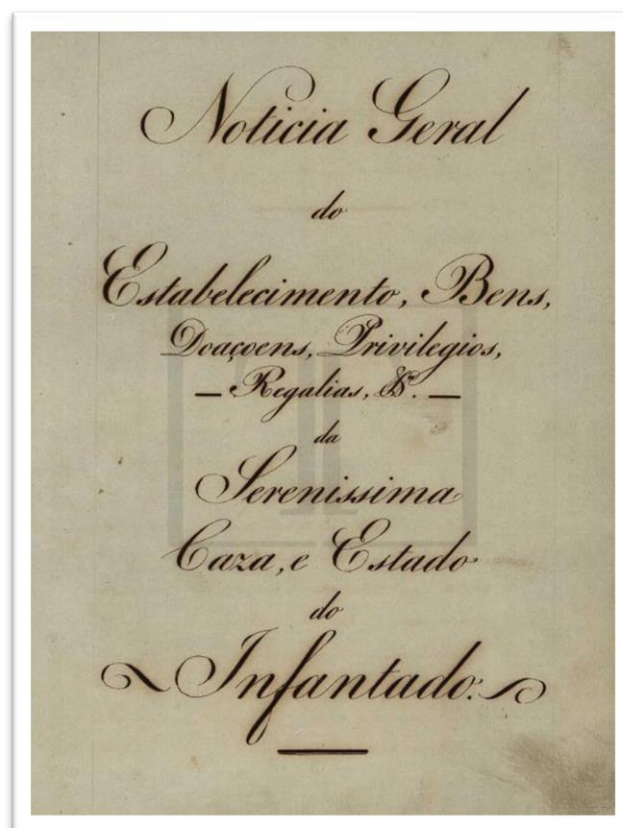 Noticia Geral
do
Estabelecimento, Bens,
Doaçoens, Privilegios,
— Regalias, &. —
da
Serenissima
Caza, e Estado
do
Infantado.